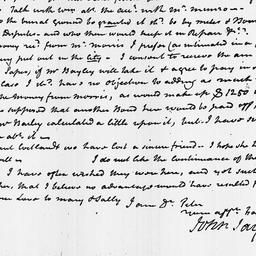 Talk with you abt. the acct. with mr. munro —
the burial ground be granted
Depute — and who then would keep it in Repair &c.
money recd. from mr. morris I prefer (as intimated in a
put out in the City — I consent to recieve the
Papes, if mr Bayley will take it & agree to pay in
I shd. have no objection to adding as much
the money from morris, as would make up $ 1250
supposed that another Bond here would be paid off
mr Bayley calculated a little upon it, but I have
abt. it —
Cortlandt we have lost a sincere friend — I hope
well — I do not like the continuance of the
I have often wished they were here, and yet such
that I believe no advantage would have resulted
our Love to mary & Sally I am Dr. Peter
your affte.
John Jay